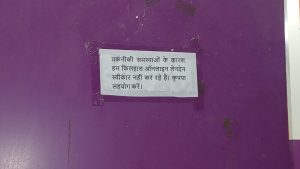 तकनीकी समस्याओं के कारण
हम फिलहाल ऑनलाइन लेनदेन
स्वीकार नहीं कर रहे हैं। कृपया
सहयोग करें।